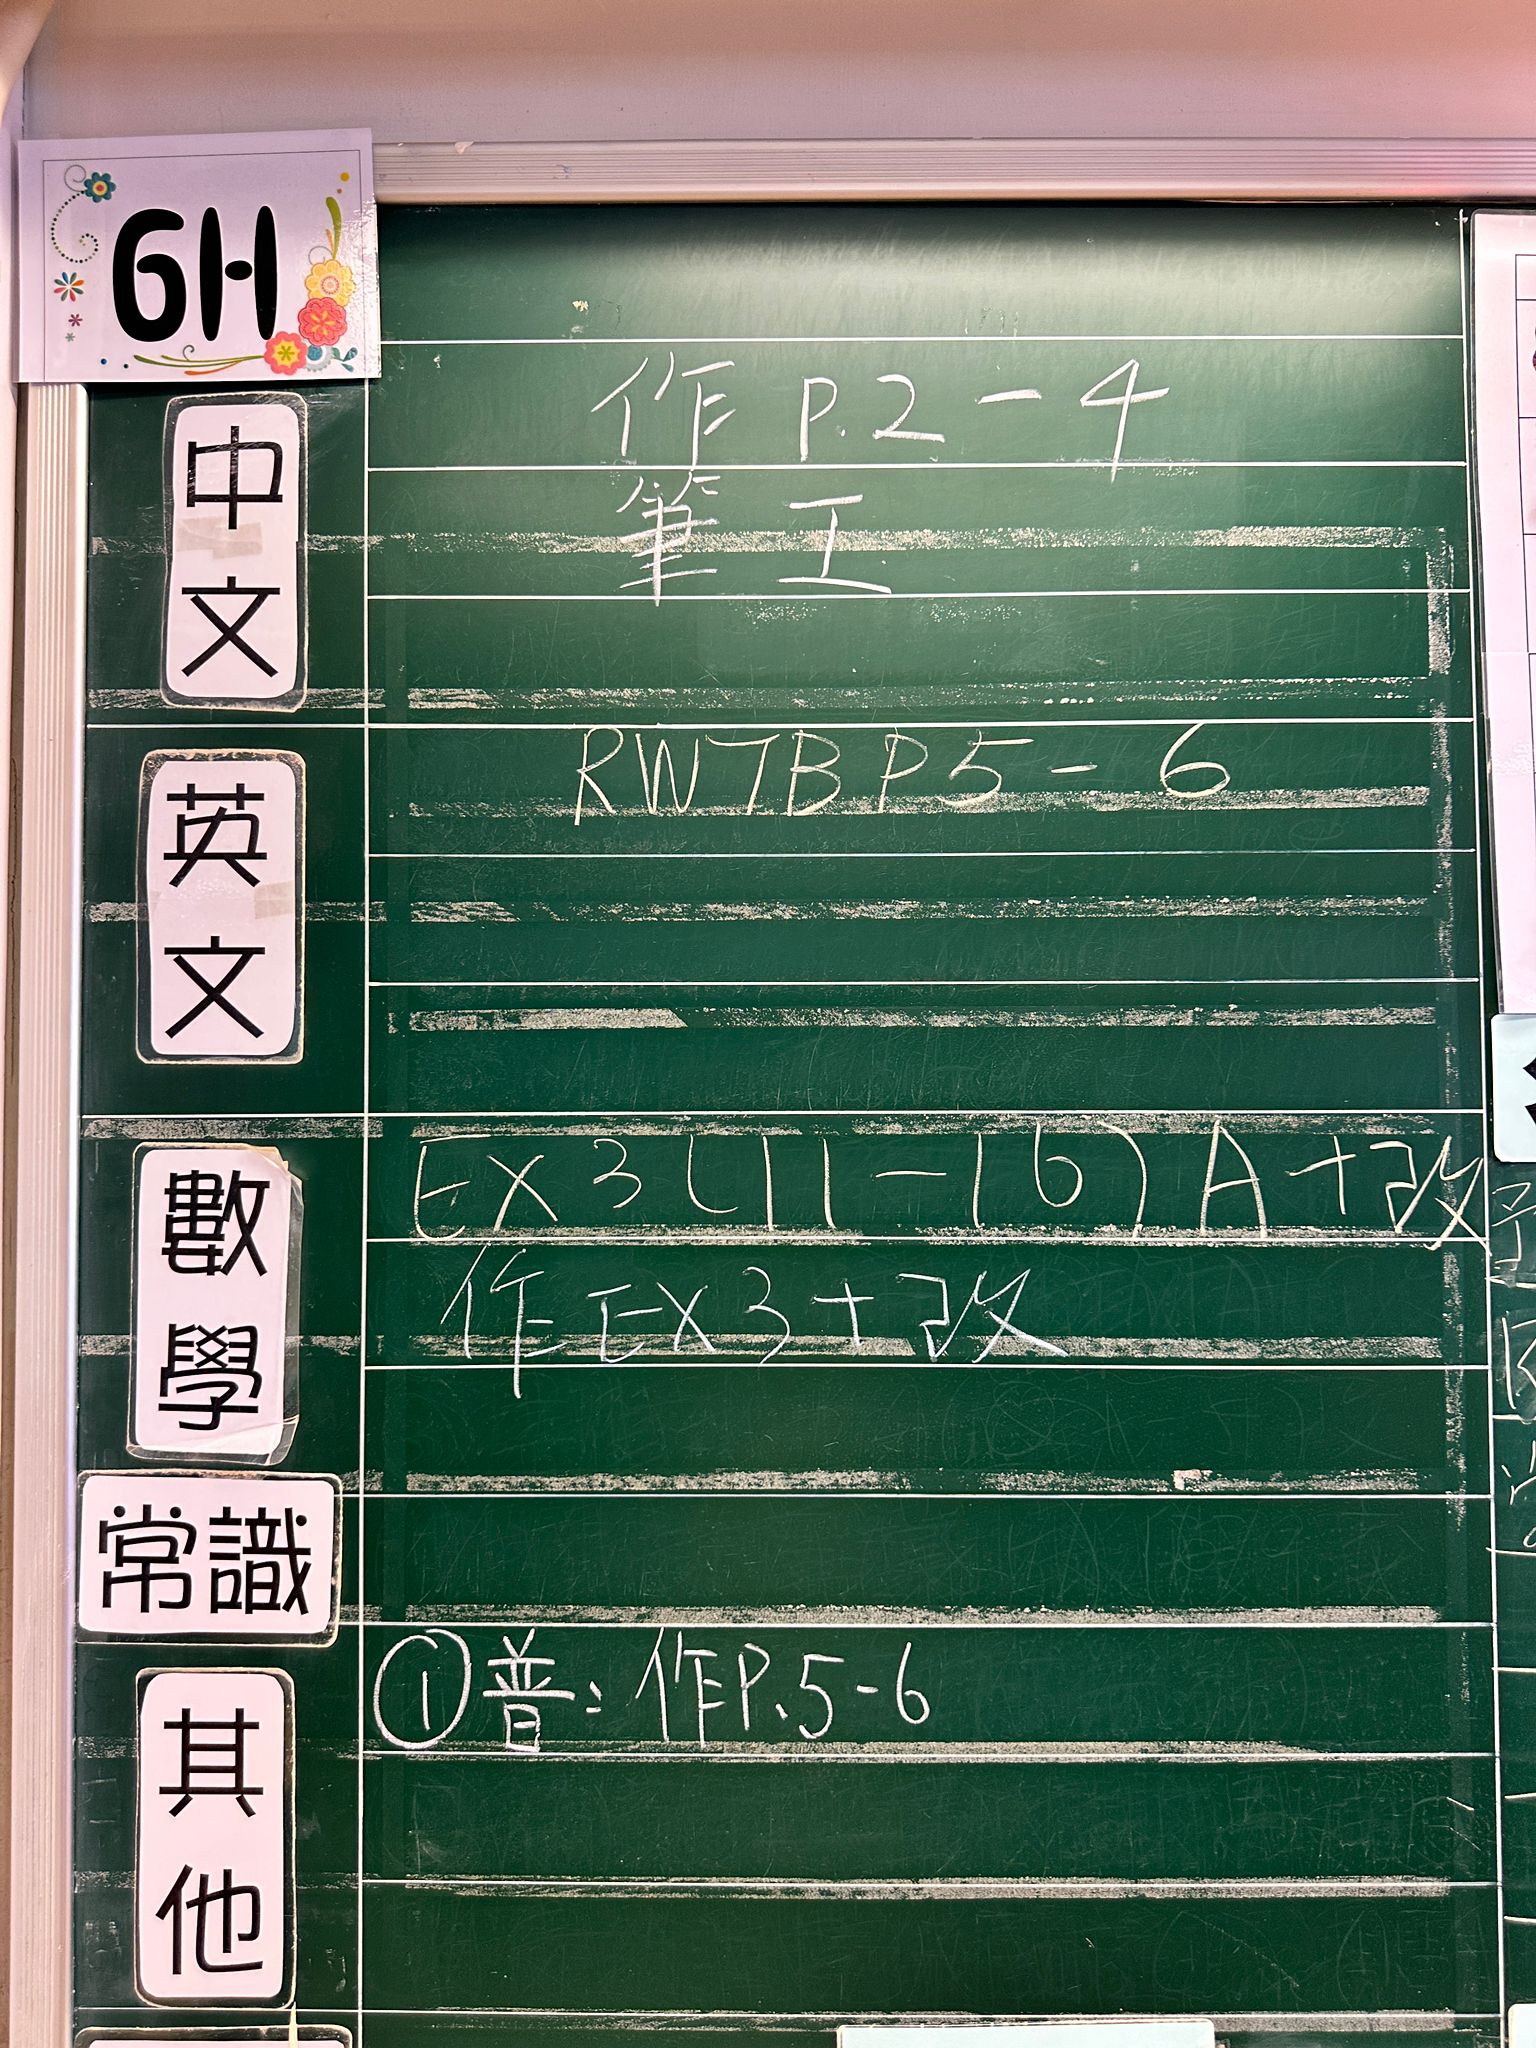 6H
中文
作 P.2-4
筆工
英文
RWTB P5-6
數學
EX 3 (11-16) A+改
作 EX 3+改
常識
其他
① 普：作P.5-6